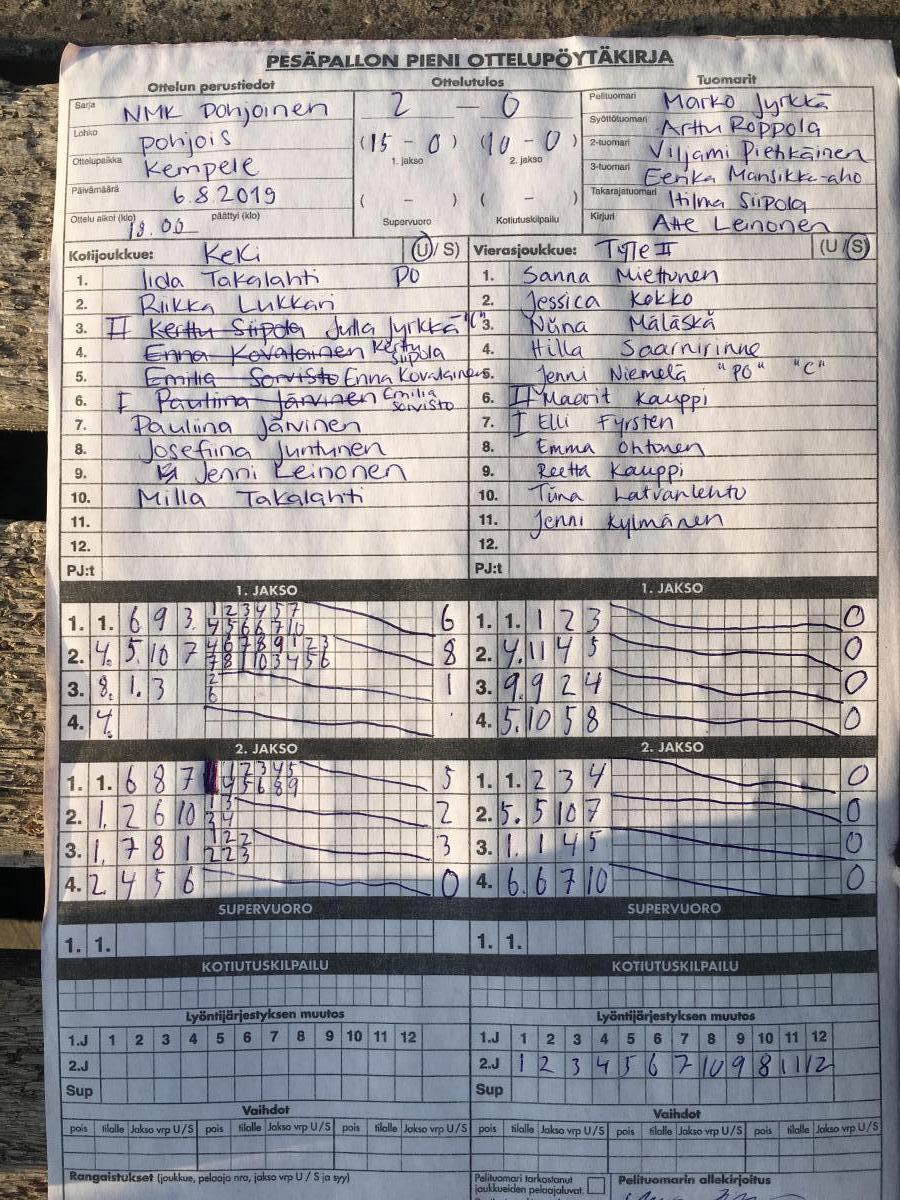 PESÄPALLON PIENI OTTELUPÖYTÄKIRJA
Ottelun perustiedot Ottelutulos Tuomarit
Sarja NMK Pohjoinen 2 — 0 Pelituomari Marko Jyrkkä
Lohko Pohjois (15 - 0) (10 - 0) Syöttötuomari Arttu Roppola
1. jakso 2. jakso 2-tuomari Viljami Piehkäinen
Ottelupaikka Kempele 3-tuomari Eerika Mansikka-aho
Päivämäärä 6.8.2019 ( - ) ( - ) Takarajatuomari Hilma Siipola
Ottelu alkoi (klo) 18.00 päättyi (klo) Supervuoro Kotiutuskilpailu Kirjuri Atte Leinonen
Kotijoukkue: KeKi (U/S) Vierasjoukkue: (U/S)
1. Iida Takalahti PO 1. Sanna Miettunen
2. Riikka Lukkari 2. Jessica Kokko
3. II Kerttu Siipola Julia Jyrkkä "C" 3. Niina Mäläskä
4. Enna Kovalainen Kerttu Siipola 4. Hilla Saarnirinne
5. Emilia Sorvisto Enna Kovalainen 5. Jenni Niemelä "PO" "C"
6. I Pauliina Järvinen Emilia Sorvisto 6. II Maarit Kauppi
7. Pauliina Järvinen 7. I Elli Fyrsten
8. Josefiina Juntunen 8. Emma Ohtonen
9. Jenni Leinonen 9. Reetta Kauppi
10. Milla Takalahti 10. Tiina Latvanlehto
11. 11. Jenni Kylmänen
12. 12.
PJ:t PJ:t
1. JAKSO 1. JAKSO
1 2 3 4 5 7
1. 1. 6 9 3. 4 5 6 6 7 10 6 1. 1. 1 2 3 0
4 6 7 8 9 1 2 3
2. 4. 5. 10 7 7 8 1 10 3 4 5 6 8 2. 4. 11 4 5 0
2
3. 8. 1. 3 6 1 3. 9. 9 2 4 0
4. 4. 4. 5. 10 5 8 0
2. JAKSO 2. JAKSO
1 2 3 4 5
1. 1. 6 8 7 4 5 6 8 9 5 1. 1. 2 3 4 0
1 3
2. 1. 2 6 10 3 4 2 2. 5. 5 10 7 0
1 2 2
3. 1. 7 8 1 2 2 3 3 3. 1. 1 4 5 0
4. 2 4 5 6 0 4. 6. 6 7 10 0
SUPERVUORO SUPERVUORO
1. 1. 1. 1.
KOTIUTUSKILPAILU KOTIUTUSKILPAILU
Lyöntijärjestyksen muutos Lyöntijärjestyksen muutos
1.J 1 2 3 4 5 6 7 8 9 10 11 12 1.J 1 2 3 4 5 6 7 8 9 10 11 12
2.J 2.J 1 2 3 4 5 6 7 10 9 8 11 12
Sup Sup
Vaihdot Vaihdot
pois tilalle Jakso vrp U/S pois tilalle Jakso vrp U/S pois tilalle Jakso vrp U/S pois tilalle Jakso vrp U/S pois tilalle Jakso vrp U/S pois tilalle Jakso vrp U/S
Rangaistukset (joukkue, pelaaja nro, jakso vrp U / S ja syy) Pelituomari tarkastanut Pelituomarin allekirjoitus
joukkueiden pelaajaluvat.